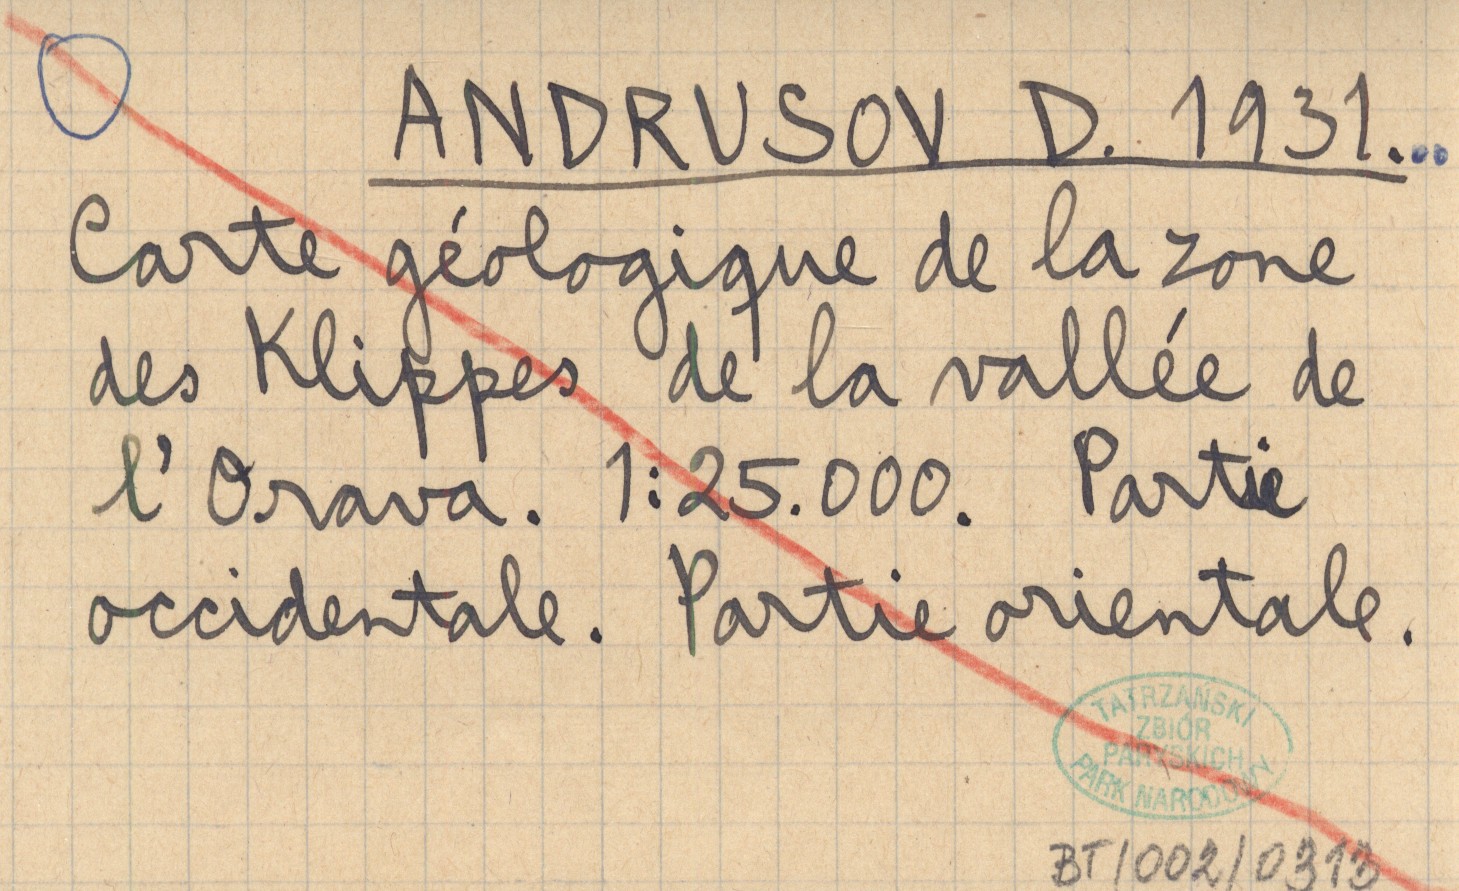 ANDRUSOV D. 1931...
Carte géologique de la zone
des Klippes de la vallée de
l'Orava. 1:25.000. Partie
occidentale. Partie orientale.
TATRZAŃSKI
ZBIÓR
PARYSKICH
PARK NARODOWY
BT/002/0313